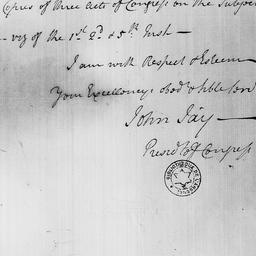 Copies of three Acts of Congress on the Subject
viz of the 1st 2d & 5th Inst —
I am with Respect & Esteem
Your Excellency's obed' & hble Serv
John Jay —
Presid' of Congress